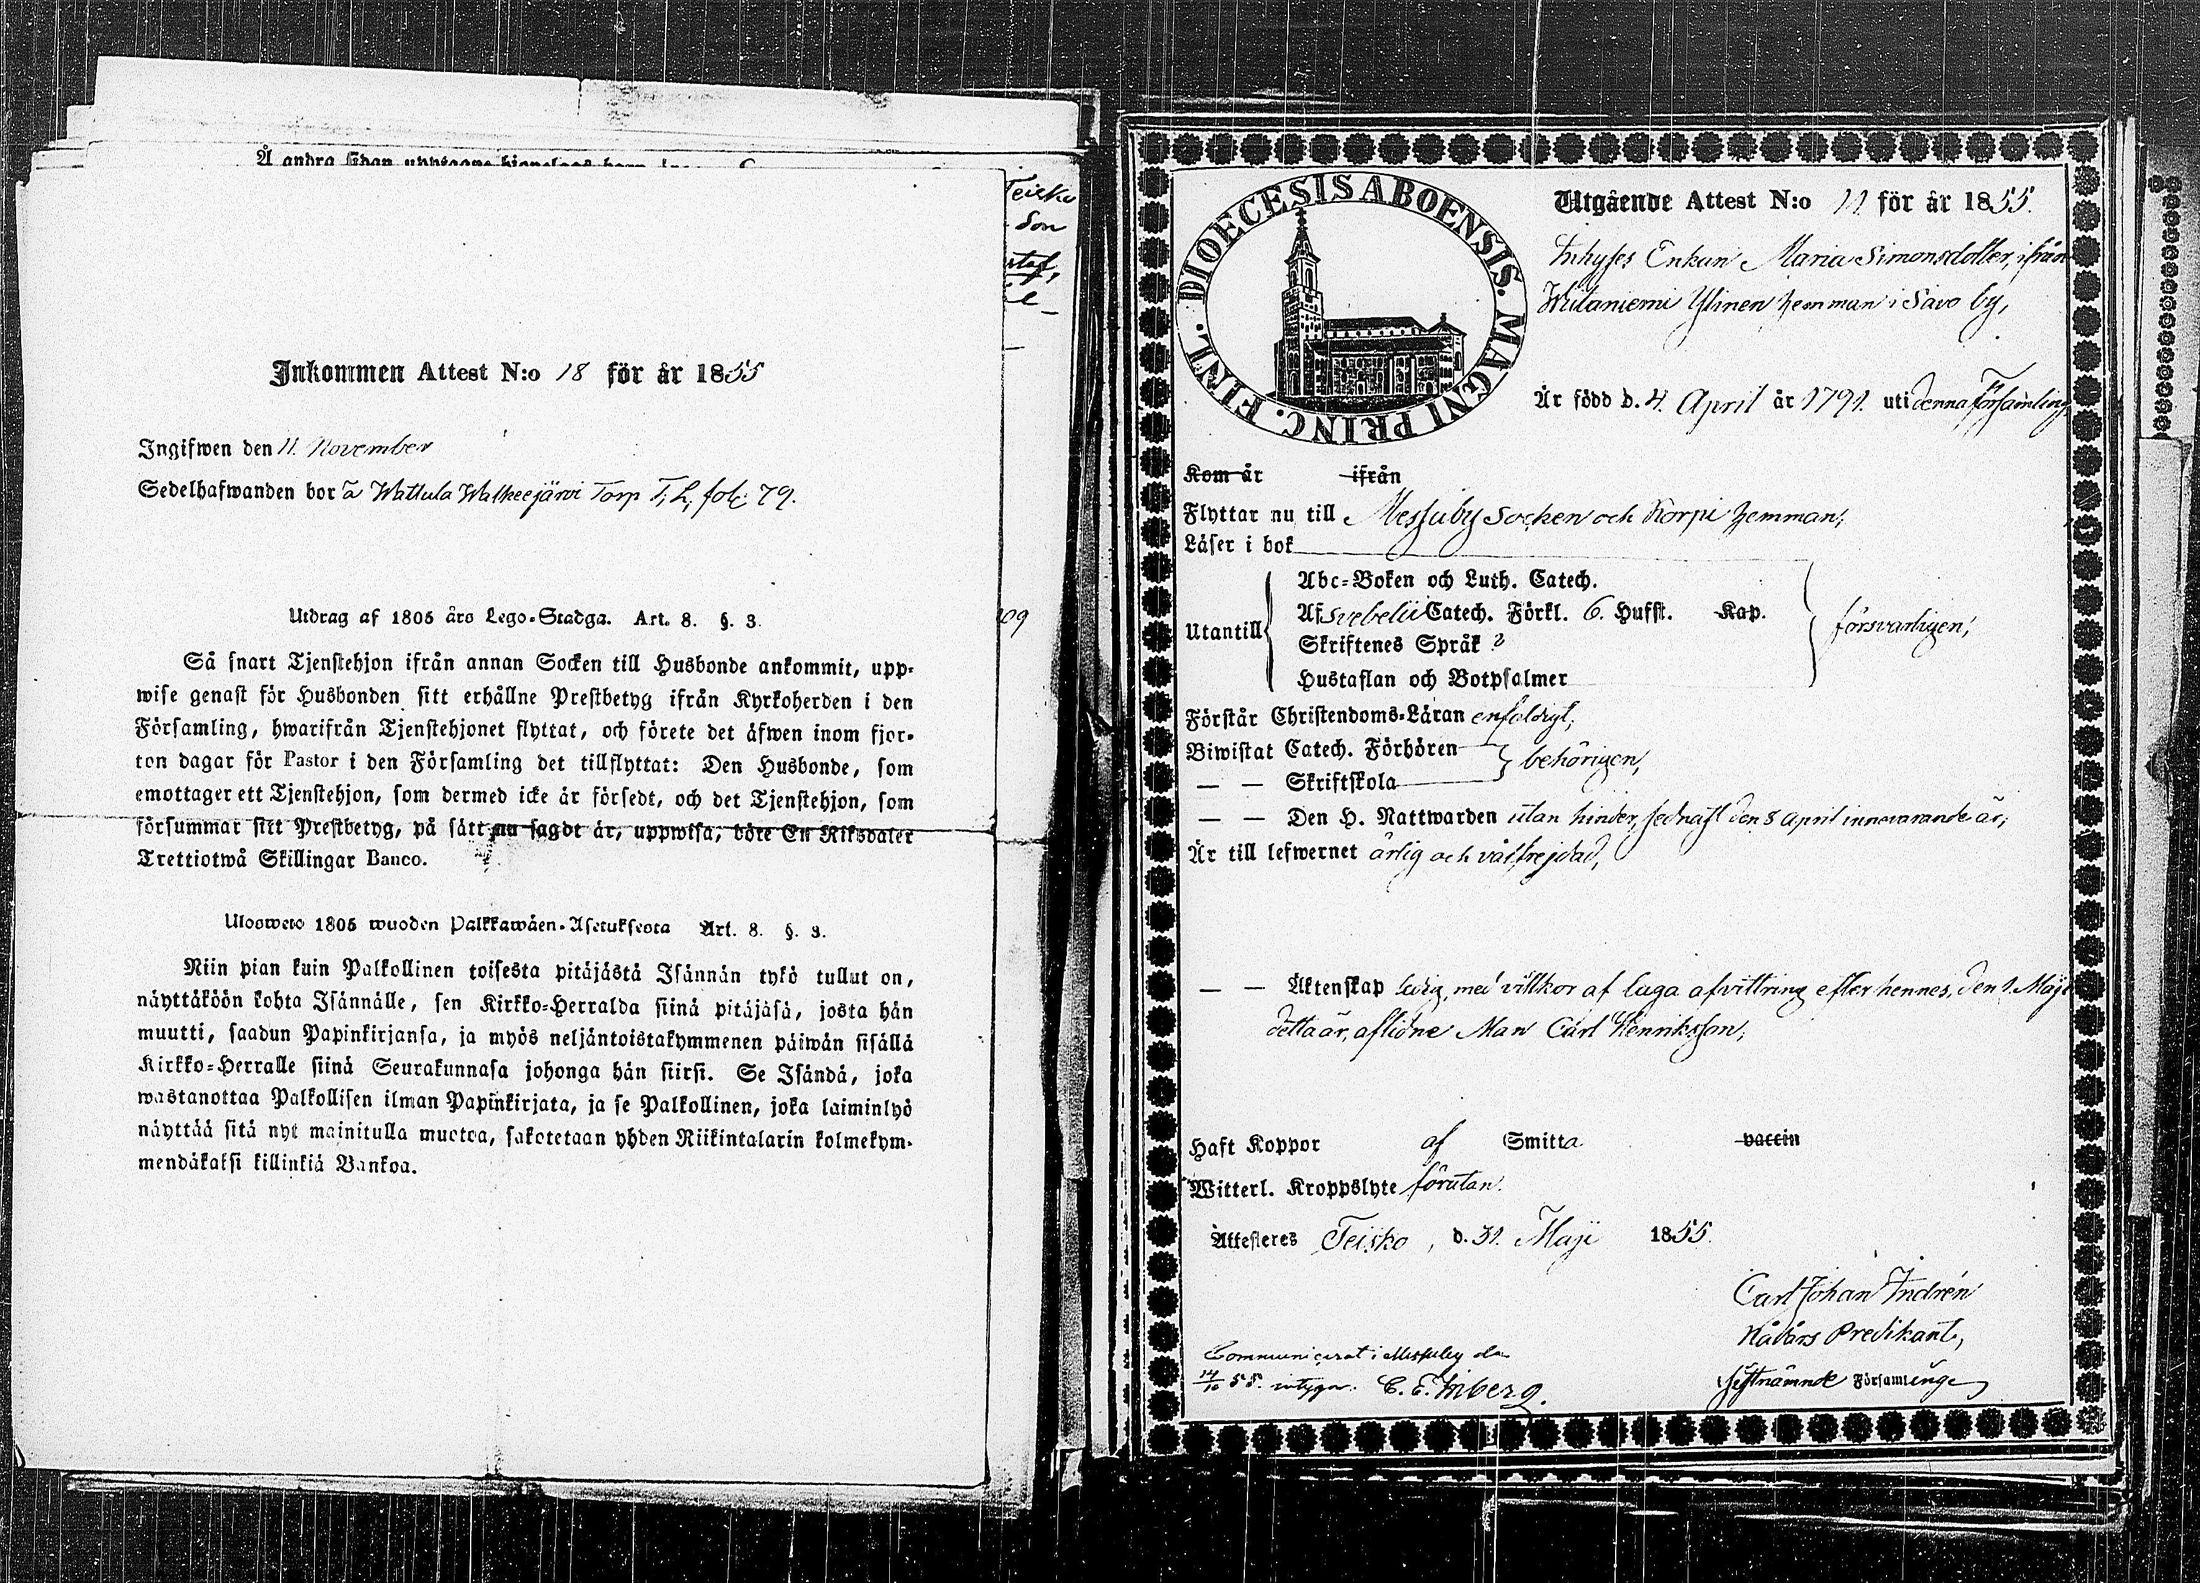 Å andra sidan
Teisko
Son
Inkommen Attest N:o 18 för år 1855
Ingifwen den 11. November
Sedelhafwanden bor å Wattula Walkeejärwi Torp T; L; fol: 79.
Utdrag af 1805 års Lego-Stadga. Art. 8. §. 3.
Så snart Tjenstehjon ifrån annan Socken till Husbonde ankommit, upp-
wise genast för Husbonden sitt erhållne Prestbetyg ifrån Kyrkoherden i den
Församling, hwarifrån Tjenstehjonet flyttat, och förete det äfwen inom fjor-
ton dagar för Pastor i den Församling det tillflyttat: Den Husbonde, som
emottager ett Tjenstehjon, som dermed icke är försedt, och det Tjenstehjon, som
försummar sitt Prestbetyg, på sätt nu sagdt är, uppwisa, böte En Riksdaler
Trettiotwå Skillingar Banco.
Ulosweto 1805 wuoden Palkkawäen-Asetuksesta Art. 8. §. 3.
Niin pian kuin Palkollinen toisesta pitäjästä Isännän tykö tullut on,
näyttäköön kohta Isännälle, sen Kirkko-Herralda siinä pitäjäsä, josta hän
muutti, saadun Papinkirjansa, ja myös neljäntoistakymmenen päiwän sisällä
Kirkko-Herralle siinä Seurakunnasa johonga hän siirsi. Se Isändä, joka
wastanottaa Palkollisen ilman Papinkirjata, ja se Palkollinen, joka laiminlyö
näyttää sitä nyt mainitulla muotoa, sakotetaan yhden Riikintalarin kolmekym-
mendäkaksi killinkiä Bankoa.
09
DIOECESIS ABOENSIS. MAGNI PRINC. FINL.
Utgående Attest N:o 11 för år 1855.
Inhyses Enkan Maria Simonsdotter, ifrån
Wiitaniemi Ylinen hemman i Savo by,
Är född d. 4. April år 1791. uti denna Församling
Kom år ifrån
Flyttar nu till Messuby Socken och Korpi hemman;
Läser i bok
Utantill
Abc-Boken och Luth. Catech.
Af Svebelii Catech. Förkl. 6. Hufst. Kap.
Skriftenes Språk
Hustaflan och Botpsalmer
försvarligen;
Förstår Christendoms-Läran enfoldigt;
Biwistat Catech. Förhören
— — Skriftskola
behörigen,
— — Den H. Nattwarden utan hinder, sednast den 8 April innevarande år;
Är till lefwernet ärlig och välfrejdad,
— — Äktenskap ledig, med villkor af laga afvittring efter hennes, den 1. Maji
detta år, aflidne Man Carl Henriksson;
Haft Koppor af Smitta vaccin
Witterl. Kroppslyte förutan.
Attesteres Teisko, d. 31. Maji 1855.
Carl Johan Indrén
Nådårs Predikant,
sistnämnde Församlinge
Communicerat i Messuby den
14/10 55. intygar. C. E. Inberg.